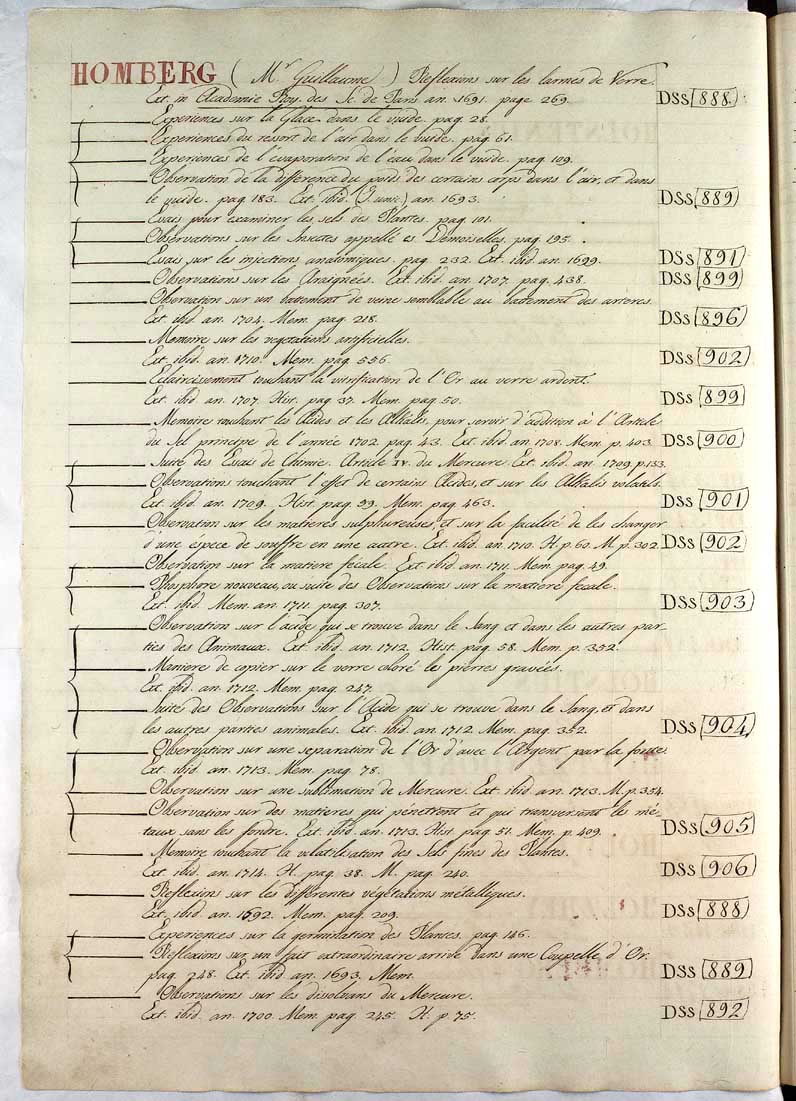 HOMBERG ( Mr Guillaume ) Reflexions sur les larmes de Verre.
Ext. in Academie Roy. des Sc. de Paris an. 1691. page 269. DSs 888.
Experiences sur la Glace dans le vuide. pag. 28.
Experiences du ressort de l'air dans le vuide. pag. 61.
Experiences de l'évaporation de l'eau dans le vuide. pag. 109.
Observation de la difference du poids des certains corps dans l'air, et dans
le vuide. pag. 183. Ext. ibid. an. 1693. DSs 889
Essais pour examiner les sels des Plantes. pag. 101.
Observations sur les Insectes appellé es Demoiselles. pag. 195.
Essais sur les injections anatomiques. pag. 232. Ext. ibid. an. 1699. DSs 891
Observations sur les Araignées. Ext. ibid. an. 1707. pag. 438. DSs 899
Observation sur un battement de veine semblable au battement des arteres.
Ext. ibid. an. 1704. Mem. pag. 218. DSs 896
Memoire sur les vegetations artificielles.
Ext. ibid. an. 1710. Mem. pag. 556. DSs 902
Eclaircisement touchant la vitrification de l'Or au verre ardent.
Ext. ibid. an. 1707. Hist. pag. 37. Mem. pag. 50. DSs 899
Memoire touchant les Acides et les Alkalis, pour servir d'addition à l'Article
du Sel principe de l'année 1702. pag. 43. Ext. ibid. an. 1708. Mem. p. 403. DSs 900
Suite des Essais de Chimie. Article IV. du Mercure. Ext. ibid. an. 1709. p. 133.
Observations touchant l'effet de certains Acides, et sur les Alkalis volatils.
Ext. ibid. an. 1709. Hist. pag. 39. Mem. pag. 463. DSs 901
Observation sur les matieres sulphureuses, et sur la facilité de les changer
d'une éspece de souffre en une autre. Ext. ibid. an. 1710. H. p. 60. M. p. 302. DSs 902
Observation sur la matiere fécale. Ext. ibid. an. 1711. Mem. pag. 49.
Phosphore nouveau, ou suite des Observations sur la matiere fecale.
Ext. ibid. Mem. an. 1711. pag. 307. DSs 903
Observation sur l'acide qui se trouve dans le Sang et dans les autres par-
ties des Animaux. Ext. ibid. an. 1712. Hist. pag. 58. Mem. p. 352.
Maniere de copier sur le verre coloré les pierres gravées.
Ext. ibid. an. 1712. Mem. pag. 247.
Suite des Observations sur l'Acide qui se trouve dans le Sang, et dans
les autres parties animales. Ext. ibid. an. 1712. Mem. pag. 352. DSs 904
Observation sur une separation de l'Or d'avec l'Argent par la fonte.
Ext. ibid. an. 1713. Mem. pag. 78.
Observation sur une sublimation de Mercure. Ext. ibid. an. 1713. M. p. 354.
Observation sur des matieres qui pénétrent et qui transversent les mé-
taux sans les fondre. Ext. ibid. an. 1713. Hist. pag. 51. Mem. p. 409. DSs 905
Memoire touchant la volatilisation des Sels fixes des Plantes.
Ext. ibid. an. 1714. H. pag. 38. M. pag. 240. DSs 906
Reflexions sur les differentes végetations métalliques.
Ext. ibid. an. 1692. Mem. pag. 209. DSs 888
Experiences sur la germination des Plantes. pag. 146.
Reflexions sur un fait extraordinaire arrivé dans une Coupelle d'Or.
pag. 248. Ext. ibid an. 1693. Mem. DSs 889
Observations sur les dissolvans du Mercure.
Ext. ibid. an. 1700. Mem. pag. 245. H. p. 75. DSs 892